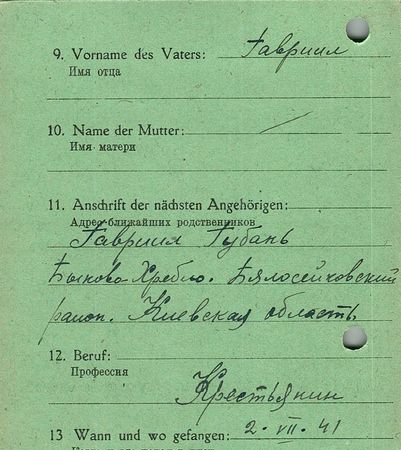 9. Vorname des Vaters: Гавриил
Имя отца
10. Name der Mutter: —
Имя матери
11. Anschrift der nächsten Angehörigen:
Адрес ближайших родственников
Гавриил Губань
Быково-Хребло.
район. Киевская область
12. Beruf:
Профессия
Крестьянин
13 Wann und wo gefangen: 2. VII. 41